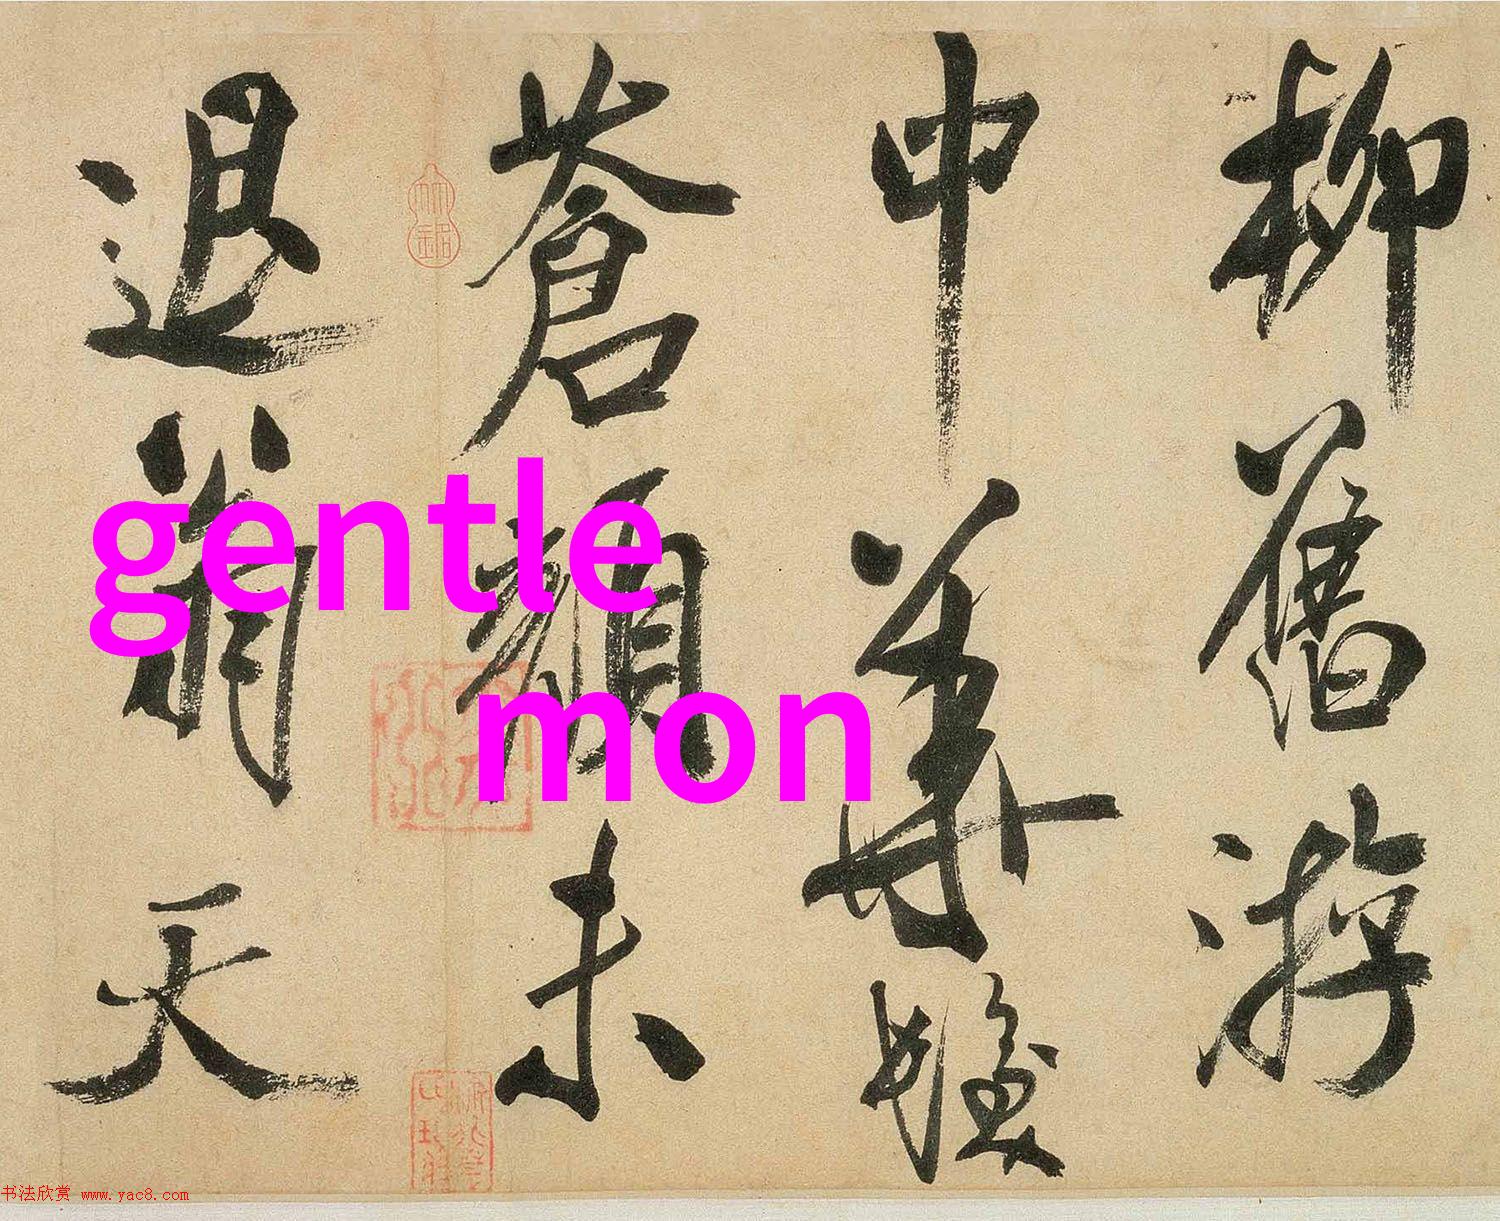 柳舊游
中華髮
蒼顏未
退翁天
gentle
mon
书法欣赏 www.yac8.com